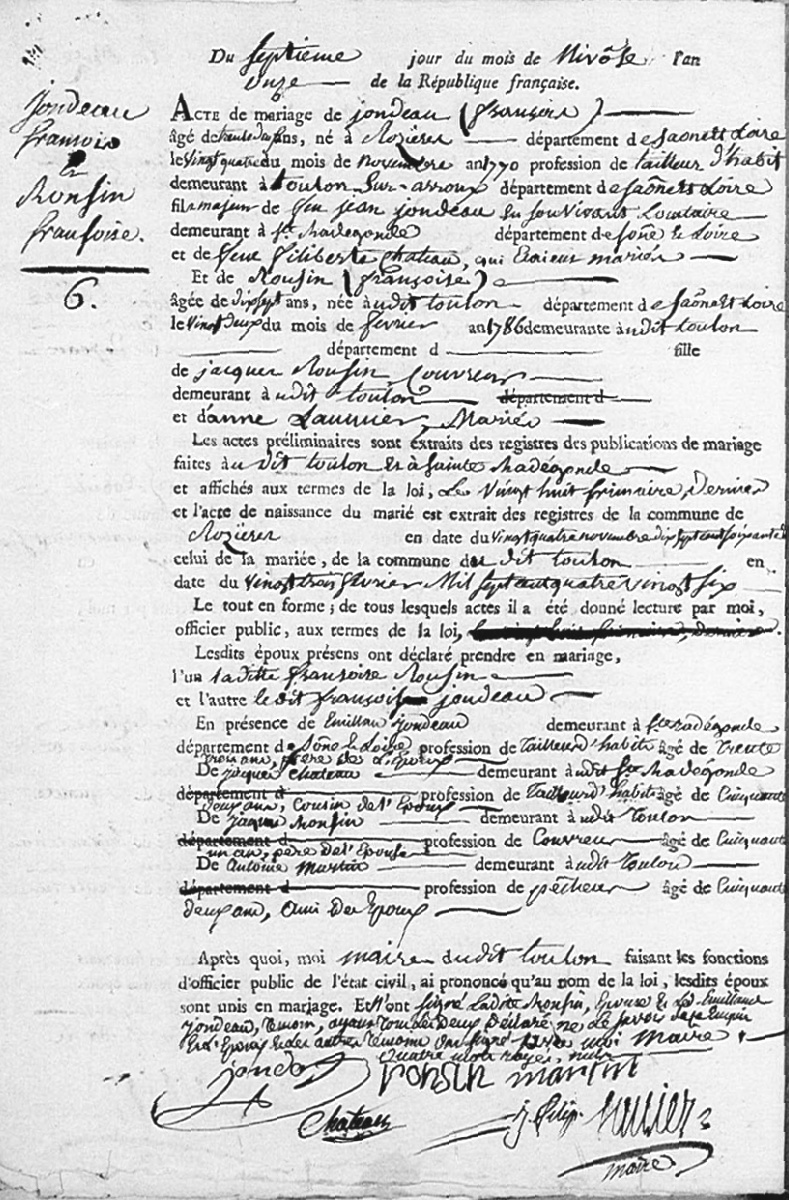 Du Septieme jour du mois de Nivôse l'an
onze de la République française.
Jondeau
francois
et
Ronsin
francoise.
6.
ACTE de mariage de jondeau (francois)
âgé de trente deux ans, né à Rozieres département de saone et Loire
le vingt quatre du mois de novembre an 1770 profession de tailleur d'habit
demeurant à toulon Sur-arroux département de saône et Loire
fils majeur de feu jean jondeau en son vivant Locataire
demeurant à Ste Radegonde département de sône et Loire
et de feue filiberte chateau, qui étaient mariés
Et de Ronsin (francoise)
âgée de dix sept ans, née audit toulon département de saône et Loire
le vingt deux du mois de fevrier an 1786 demeurante audit toulon
département d fille
de jacques Ronsin Couvreur
demeurant audit toulon département d
et d'anne Laumier, Mariés
Les actes préliminaires sont extraits des registres des publications de mariage
faites audit toulon et à Sainte Radégonde
et affichés aux termes de la loi, Le vingt huit frimaire, dernier
et l'acte de naissance du marié est extrait des registres de la commune de
Rozieres en date du vingt quatre novembre dix sept cent soixante
celui de la mariée, de la commune du dit toulon en
date du vingt trois fevrier Mil sept cent quatre vingt six
Le tout en forme; de tous lesquels actes il a été donné lecture par moi,
officier public, aux termes de la loi, Le vingt huit frimaire, dernier.
Lesdits époux présens ont déclaré prendre en mariage,
l'un laditte francoise Ronsin
et l'autre le dit françois jondeau
En présence de Emilland jondeau demeurant à Ste radégonde
département de Sône et Loire profession de tailleur d'habits âgé de trente
trois ans, frere de L'Epoux
De jacques chateau demeurant audit Ste Radégonde
département d profession de tailleur d'habits âgé de Cinquante
deux ans, Cousin de L'Epoux
De jacques Ronsin demeurant audit Toulon
département d profession de Couvreur âgé de Cinquante
un an, pere de L'Epouse
De Antoine Martin demeurant audit Toulon
département d profession de pêcheur âgé de Cinquante
deux ans, ami des Epoux
Après quoi, moi maire dudit toulon faisant les fonctions
d'officier public de l'état civil, ai prononcé qu'au nom de la loi, lesdits époux
sont unis en mariage. Et n'ont signé Ladite Ronsin, Epouse et Led. Emilland
jondeau, temoin, ayant tous les deux déclaré ne le savoir de ce Enquis
Et L'Epoux et les autres temoins ont signé avec moi Maire
quatre mots rayés, nuls
jondeau ronsin martin
Chateau J. Filip.
maire